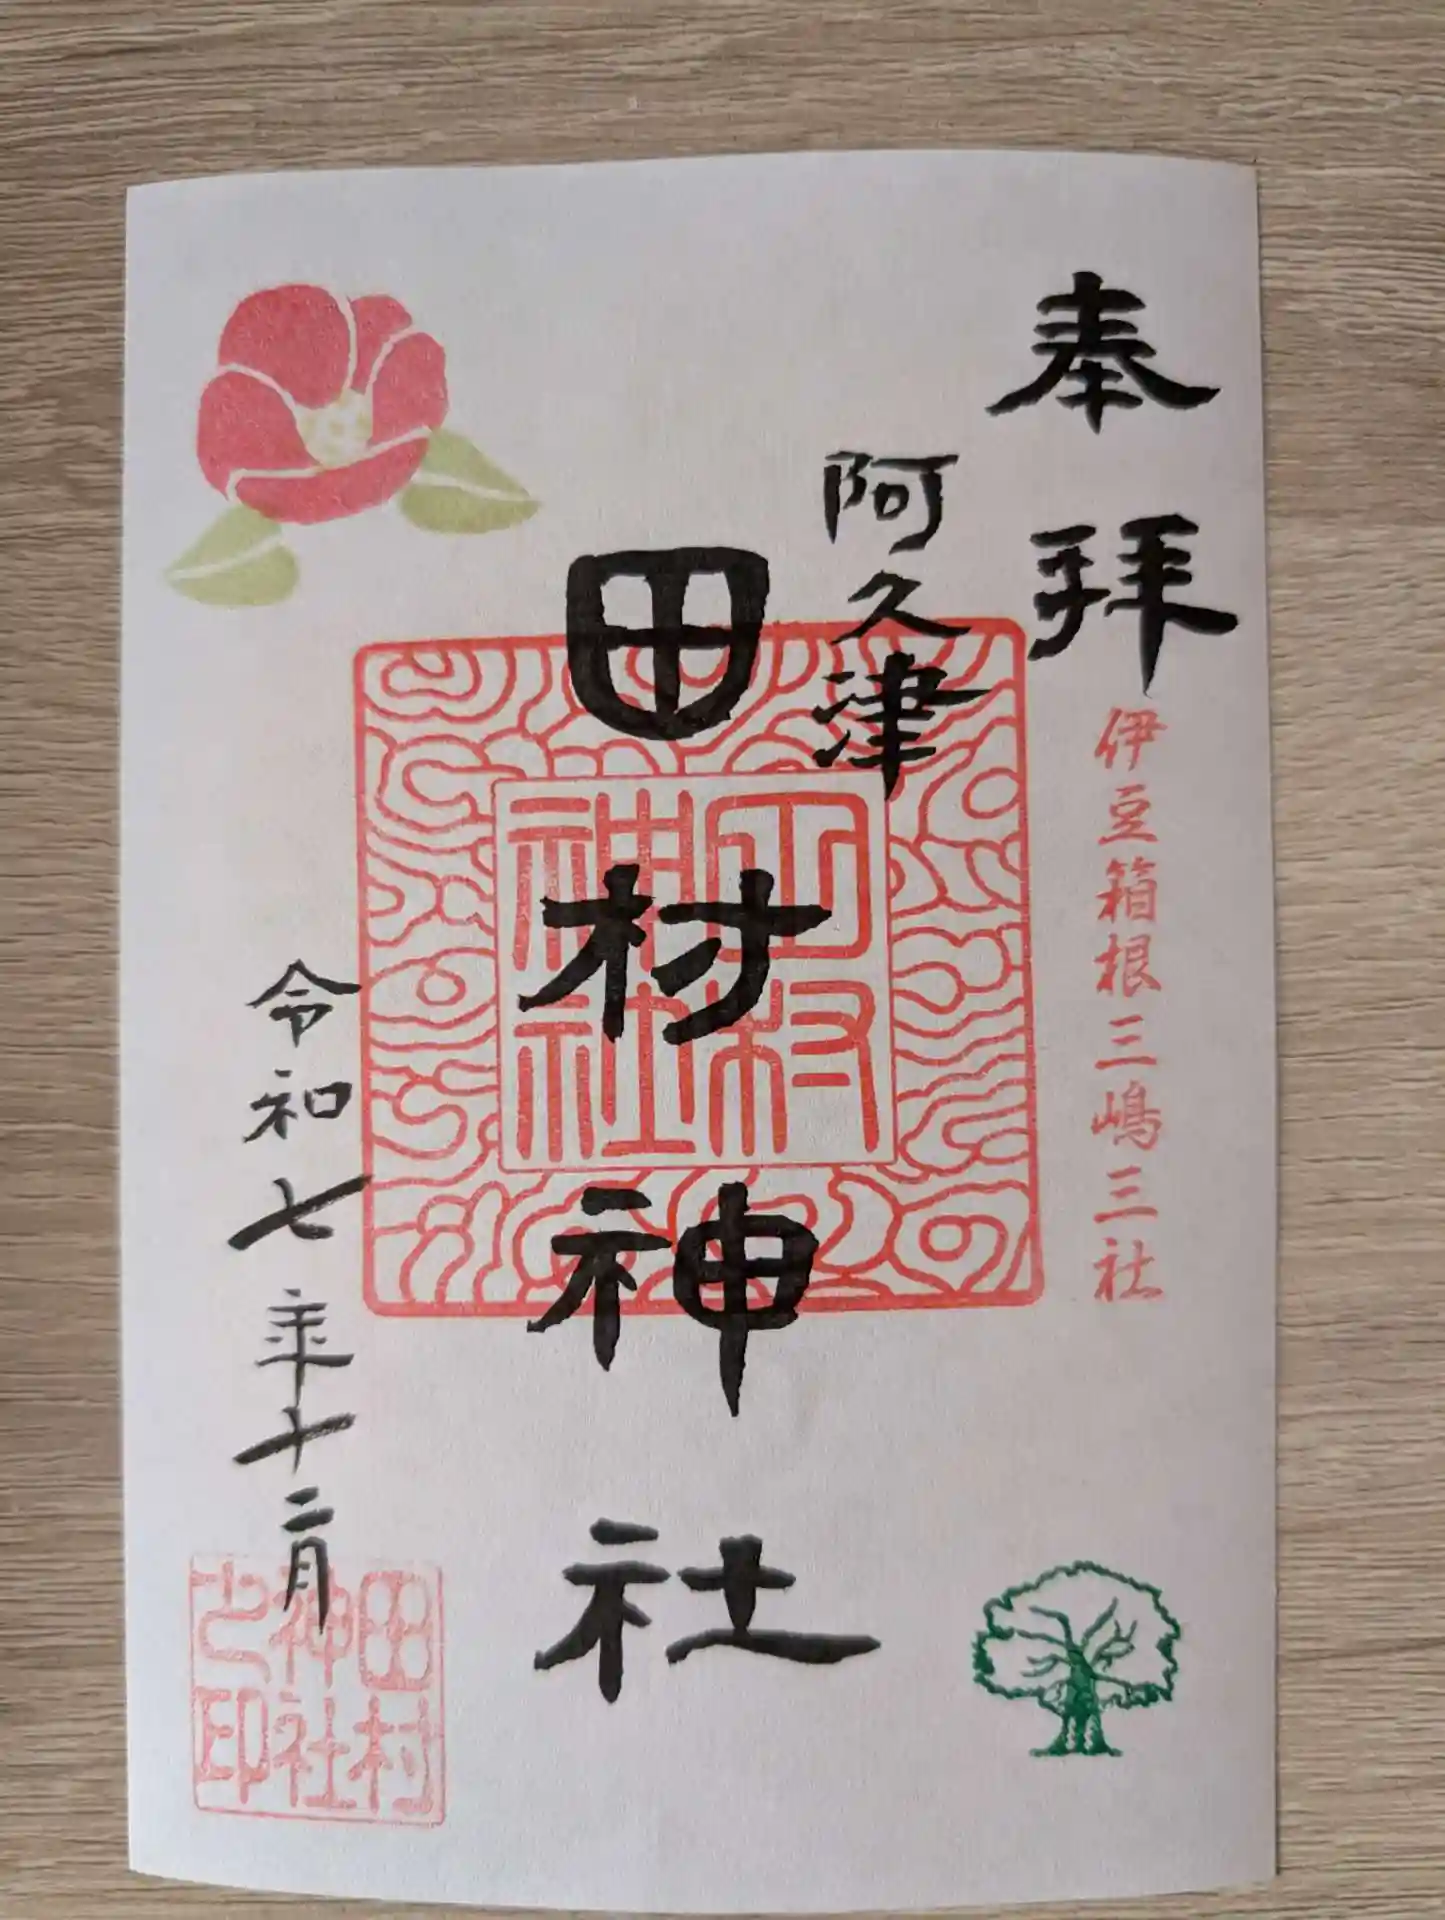 奉拝
伊豆箱根三嶋三社
阿久津
田村神社
田村神社
令和七年十二月
田村神社之印